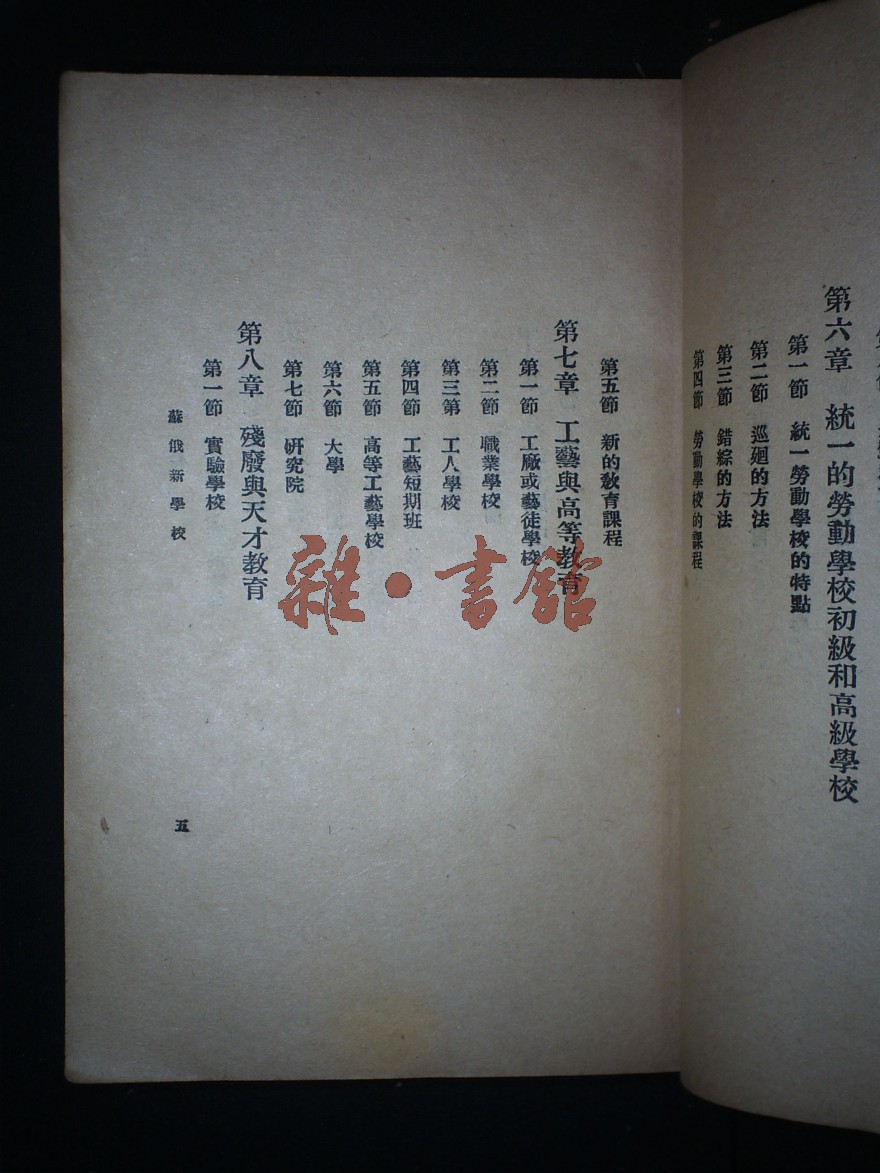 第六章 統一的勞動學校初級和高級學校
第一節 統一勞動學校的特點
第二節 巡廻的方法
第三節 錯綜的方法
第四節 勞動學校的課程
第五節 新的敎育課程
第七章 工藝與高等教育
第一節 工廠或藝徒學校
第二節 職業學校
第三第 工人學校
第四節 工藝短期班
第五節 高等工藝學校
第六節 大學
第七節 硏究院
第八章 殘廢與天才教育
第一節 實驗學校
蘇俄新學校
五
雜·書館